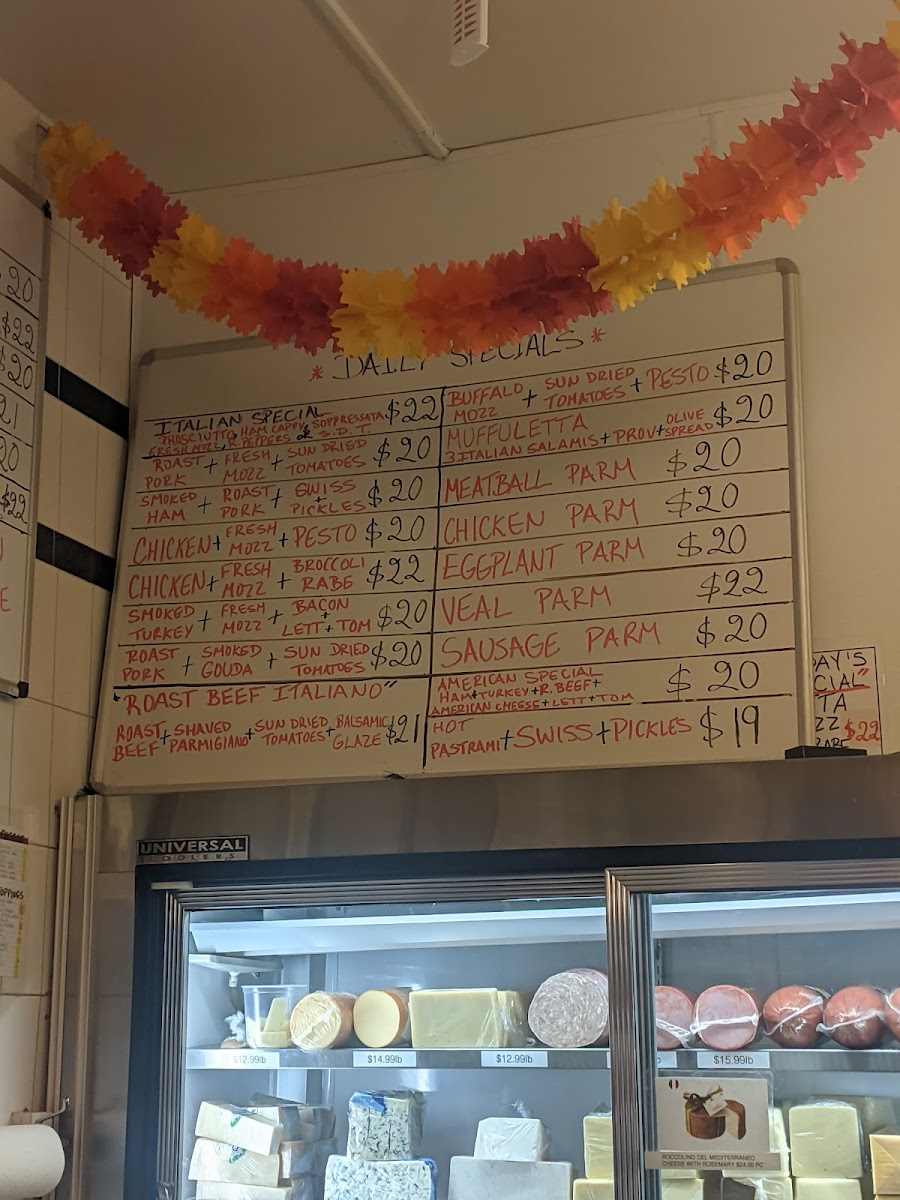 * DAILY SPECIALS *
ITALIAN SPECIAL
PROSCIUTTO, HAM CAPPY, SOPPRESSATA
FRESH MOZZ, R. PEPPERS OR S.D.T.
$22
ROAST PORK + FRESH MOZZ + SUN DRIED TOMATOES $20
SMOKED HAM + ROAST PORK + SWISS + PICKLES $20
CHICKEN + FRESH MOZZ + PESTO $20
CHICKEN + FRESH MOZZ + BROCCOLI RABE $22
SMOKED TURKEY + FRESH MOZZ + BACON + LETT + TOM $20
ROAST PORK + SMOKED GOUDA + SUN DRIED TOMATOES $20
"ROAST BEEF ITALIANO"
ROAST BEEF + SHAVED PARMIGIANO + SUN DRIED TOMATOES + BALSAMIC GLAZE $21
BUFFALO MOZZ + SUN DRIED TOMATOES + PESTO $20
MUFFULETTA
3 ITALIAN SALAMIS + PROV + OLIVE SPREAD $20
MEATBALL PARM $20
CHICKEN PARM $20
EGGPLANT PARM $20
VEAL PARM $22
SAUSAGE PARM $20
AMERICAN SPECIAL
HAM + TURKEY + R. BEEF +
AMERICAN CHEESE + LETT + TOM
$20
HOT PASTRAMI + SWISS + PICKLES $19
20
$22
$20
21
20
$22
E
AY'S
CIAL"
TA
ZZ $22
RABE
UNIVERSAL
COOLERS
OPPINGS
$12.99lb
$14.99lb
$12.99lb
$15.99lb
ROCCOLINO DEL MEDITERRANEO
CHEESE WITH ROSEMARY $24.00 PC